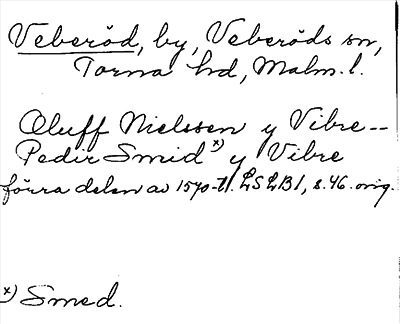 Veberöd, by, Veberöds sn,
Torna hd, Malm. l.
Oluff Nielssen y Vibre--
Pedir Smid x) y Vibre
förra delen av 1570-t. LSLB1, s. 46. orig.
x) Smed.